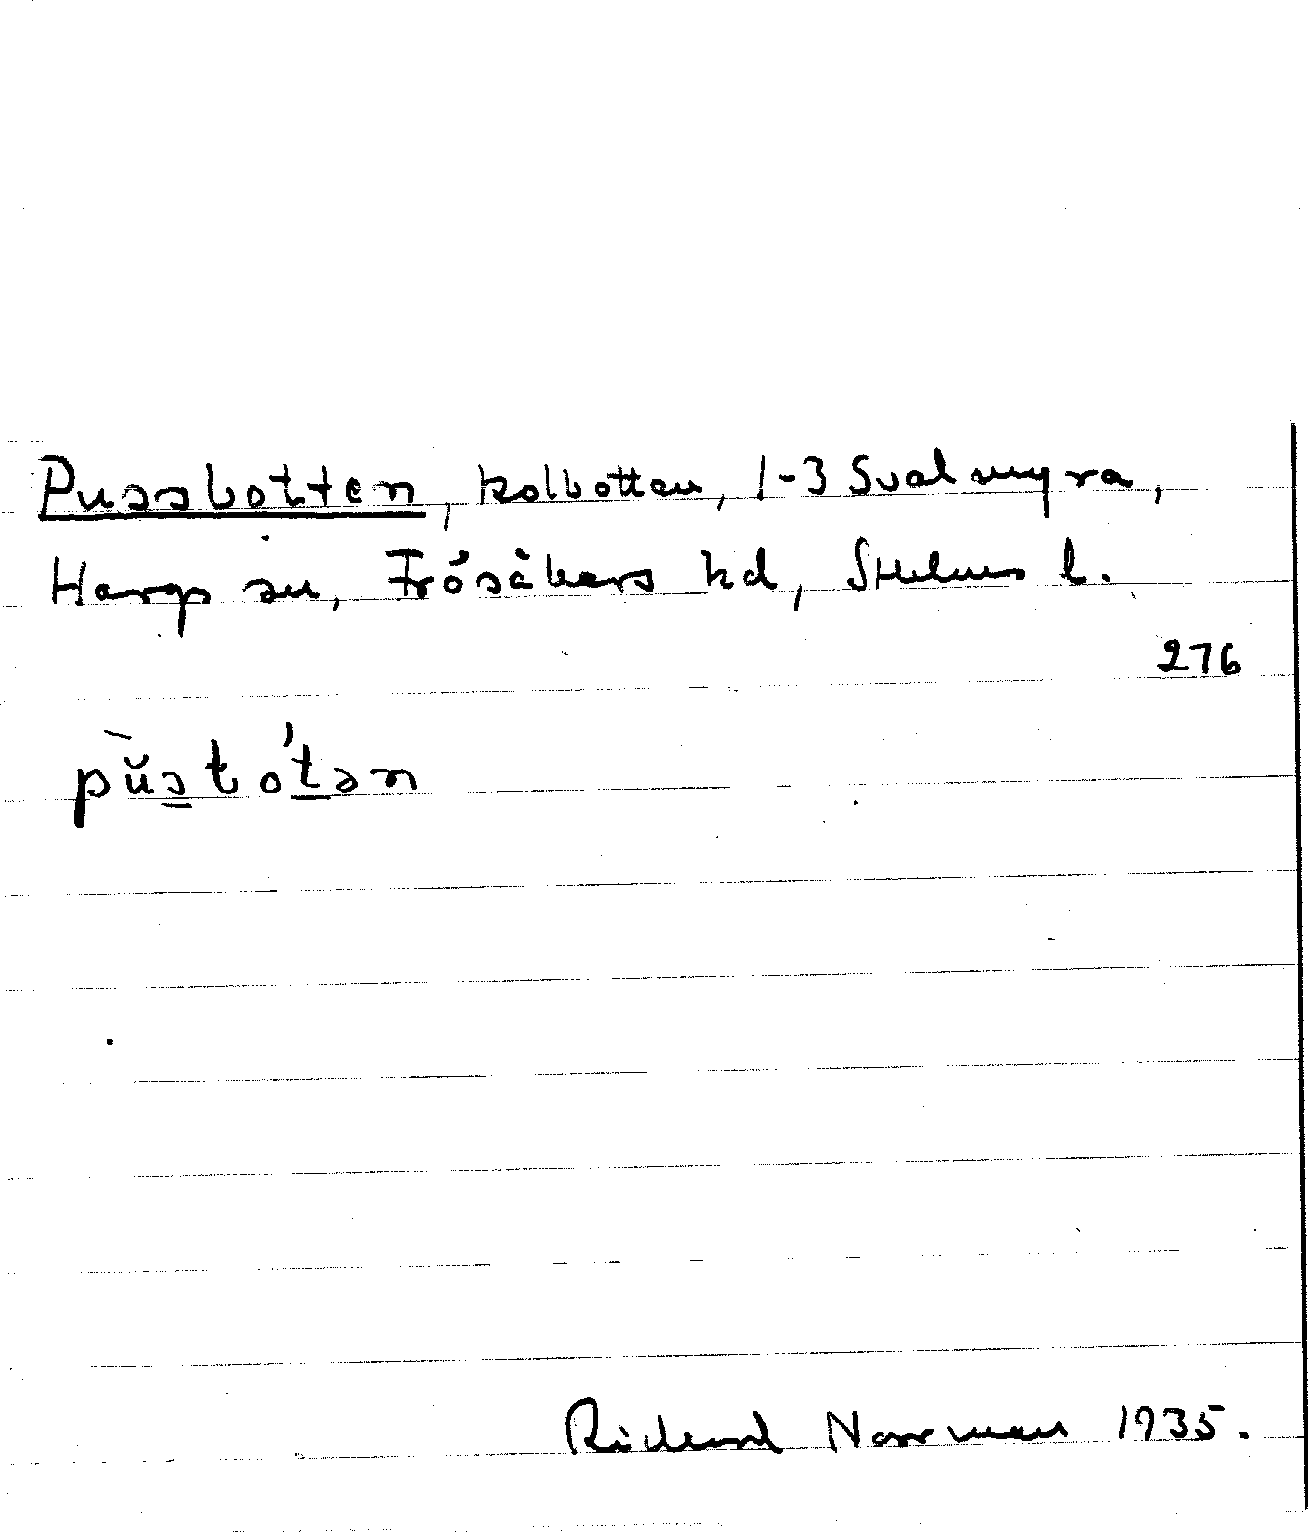 Pussbotten, kolbotten, 1-3 Svalmyra,
Hargs sn, Frösåkers hd, Sthlms l.
276
pŭ̀stót̠ən
Rickard Norrman 1935.